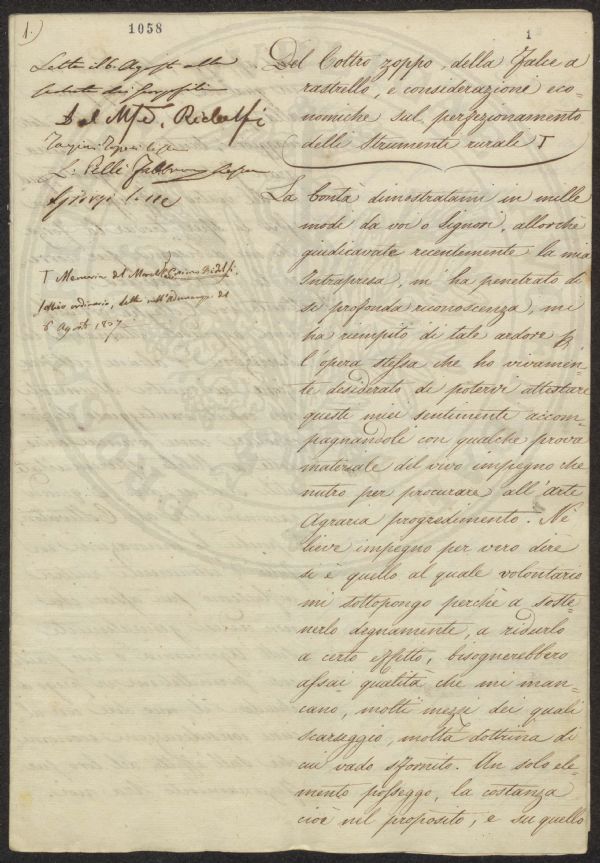 1.)
1058
1
Letta il 6. Agosto alla
Del Mse. Ridolfi
L: Pelli Fabbroni
T Memoria del March. Cosimo Ridolfi.
Socio ordinario, letta nell'Adunanza del
6 Agosto 1827
Del Coltro zoppo, della Falce a
rastrello, e considerazione eco-
nomiche sul perfezionamento
delli Strumenti rurale T
La bontà dimostratami in mille
modi da voi o Signori, allorchè
giudicavate recentemente la mia
Intrapresa, m'ha penetrato di
sì profonda riconoscenza, mi
ha riempito di tale ardore
l'opera stessa che ho vivamen-
te desiderato di potervi attestare
questi miei sentimente accom-
pagnandoli con qualche prova
materiale del vivo impegno che
nutro per procurare all'arte
Agraria progredimento. Nè
lieve impegno per vero dire
si è quello al quale volontario
mi sottopongo perchè a soste-
nerlo degnamente, a ridurlo
a certo effetto, bisognerebbero
assai qualità che mi man-
cano, molti mezzi dei quali
scarseggio, molta dottrina di
cui vado sfornito. Un solo ele-
mento posseggo, la costanza
cioè nel proposito, e su quello